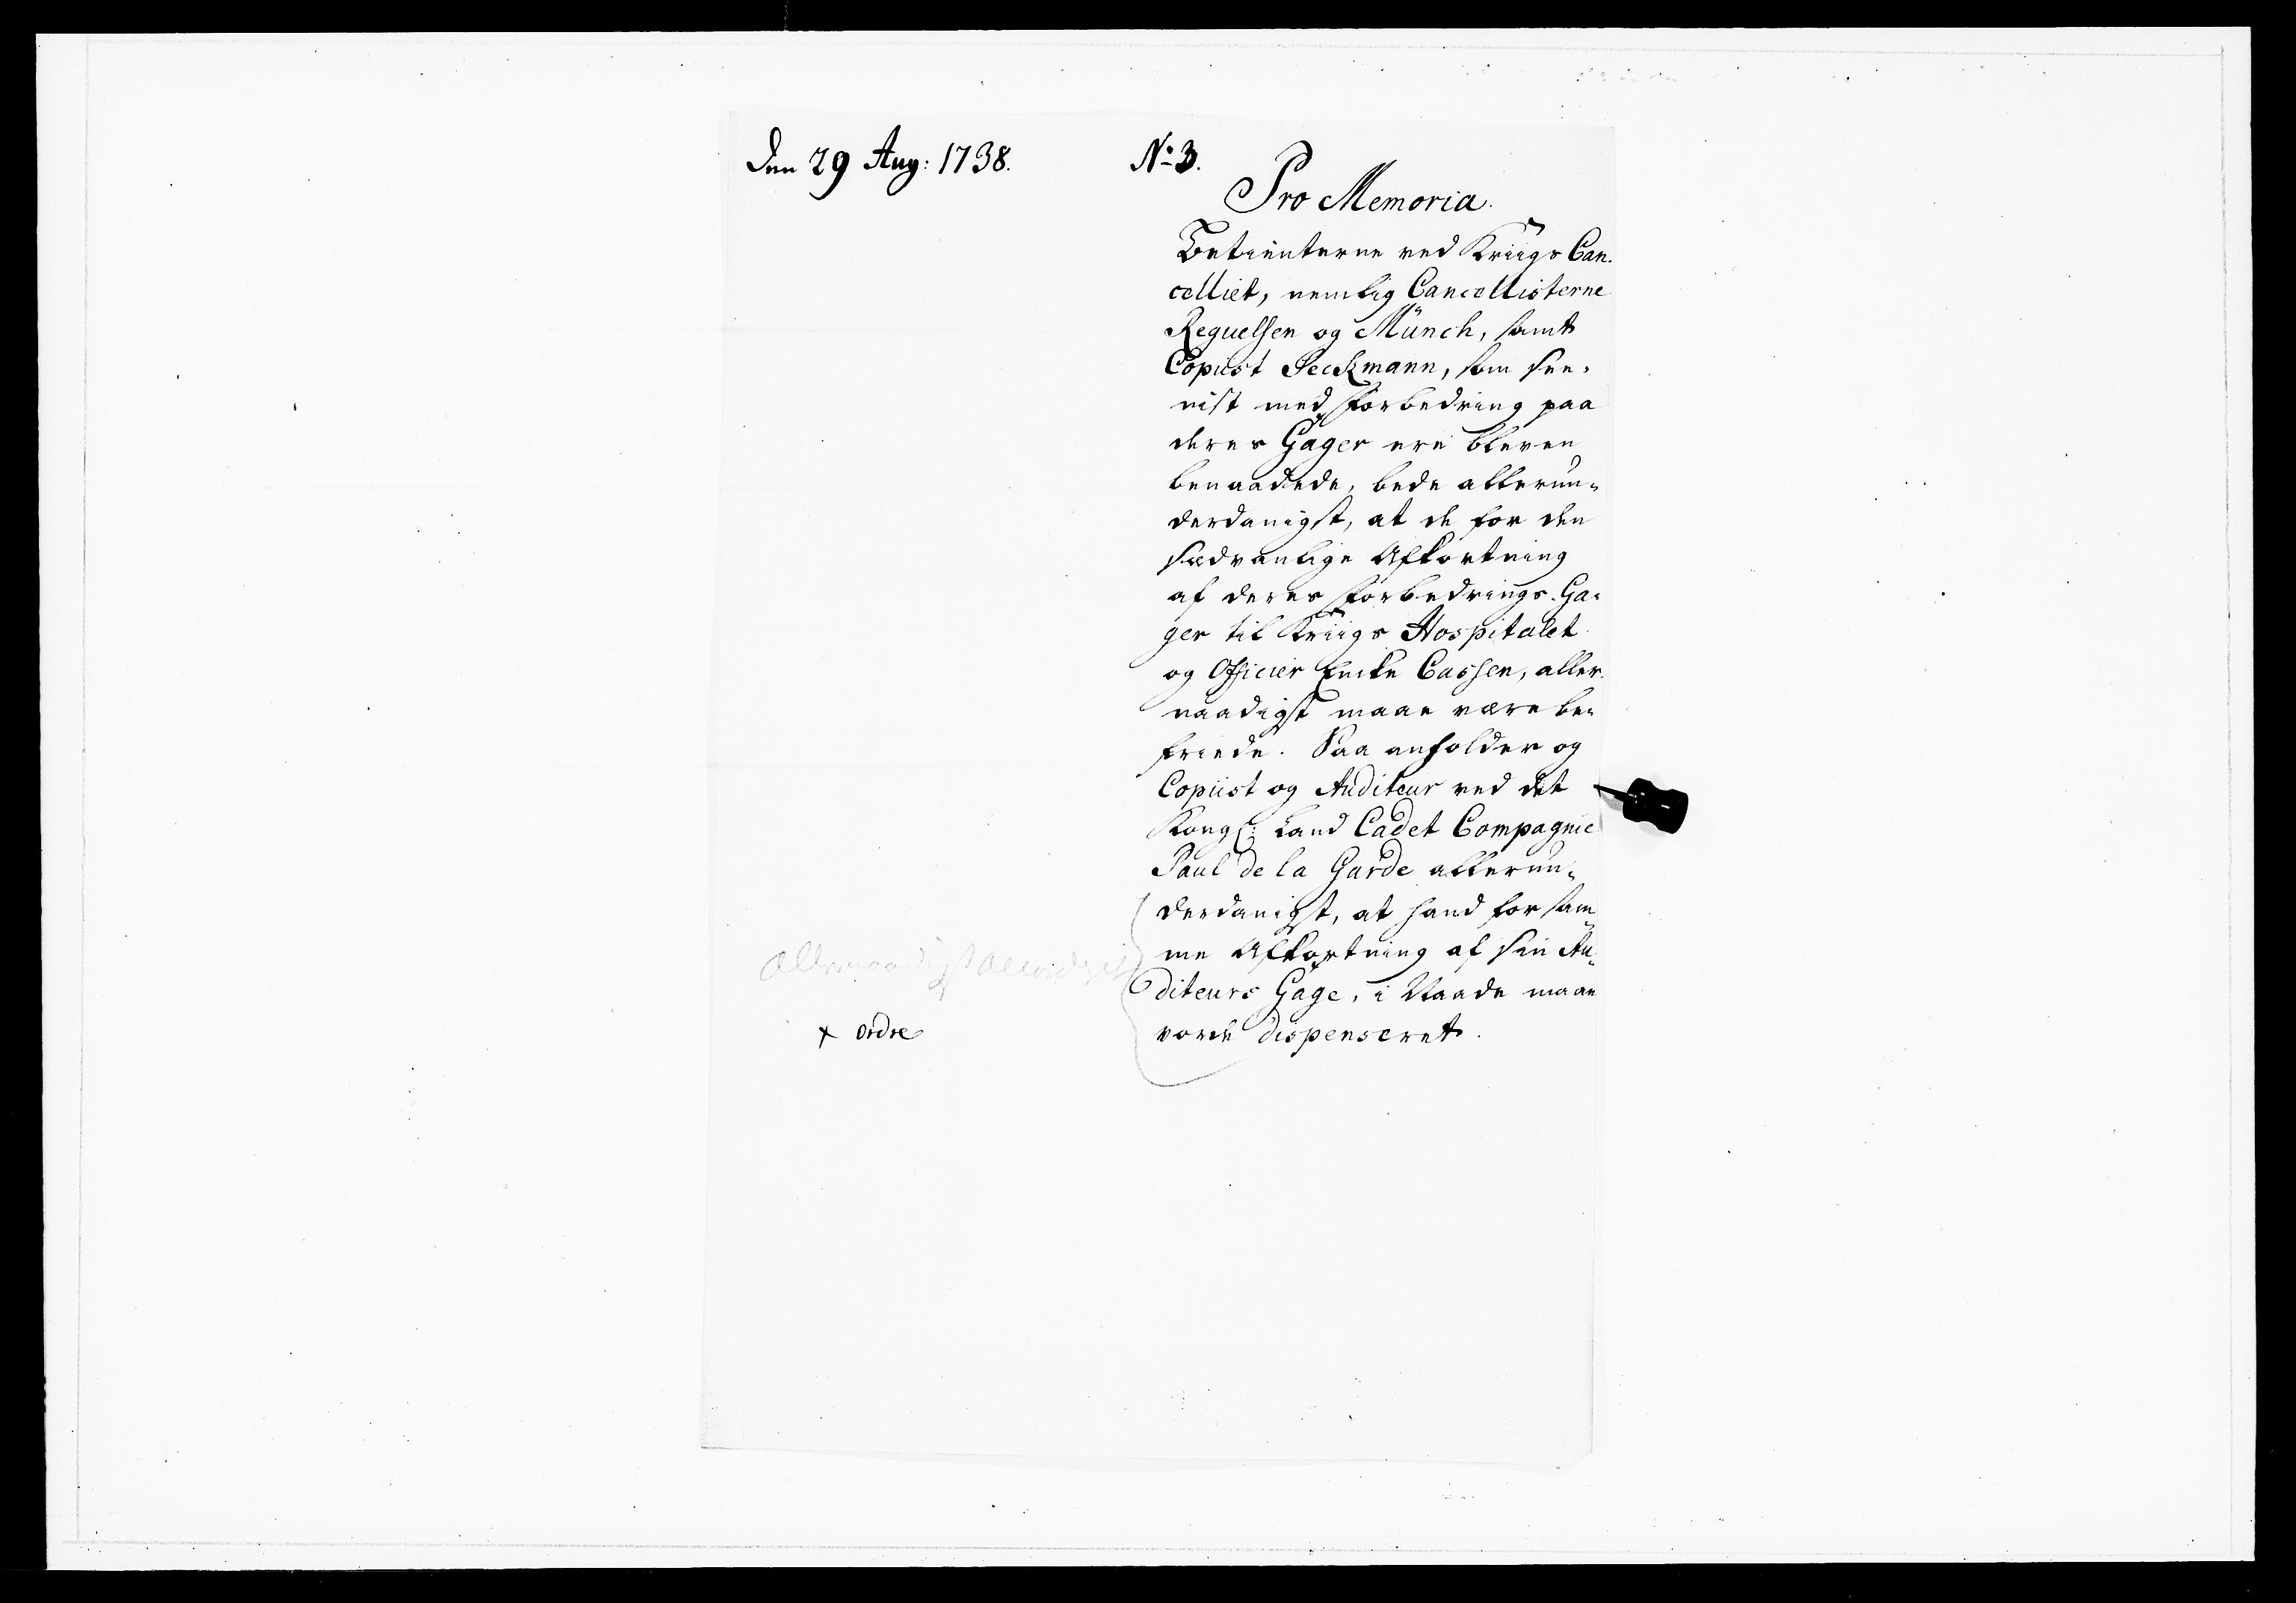 Den 29 Aug: 1738.
No 3.
Pro Memoria.
Betienterne ved Kriigs Can-
celliet, nemlig Cancellisterne
Reguelsen og Münch, samt
Copiist Seckmann, som see-
nist med Forbedring paa
deres Gager ere bleven
benaadede, bede allerun-
derdanigst, at de for den
sædvanlige Afkortning
af deres Forbedrings-Ga-
ger til Kriigs Hospitalet
og Officier Encke Cassen, aller-
naadigst maae være be-
friede. Saa anholder og
Copiist og Auditeur ved det
Kongl: Land Cadet Compagnie
Paul de la Garde allerun-
derdanigst, at hand for sam-
me Afkortning af sin Au-
diteurs Gage, i Naade maae
vorde dispenseret.
Allernaadigst
+ ordre